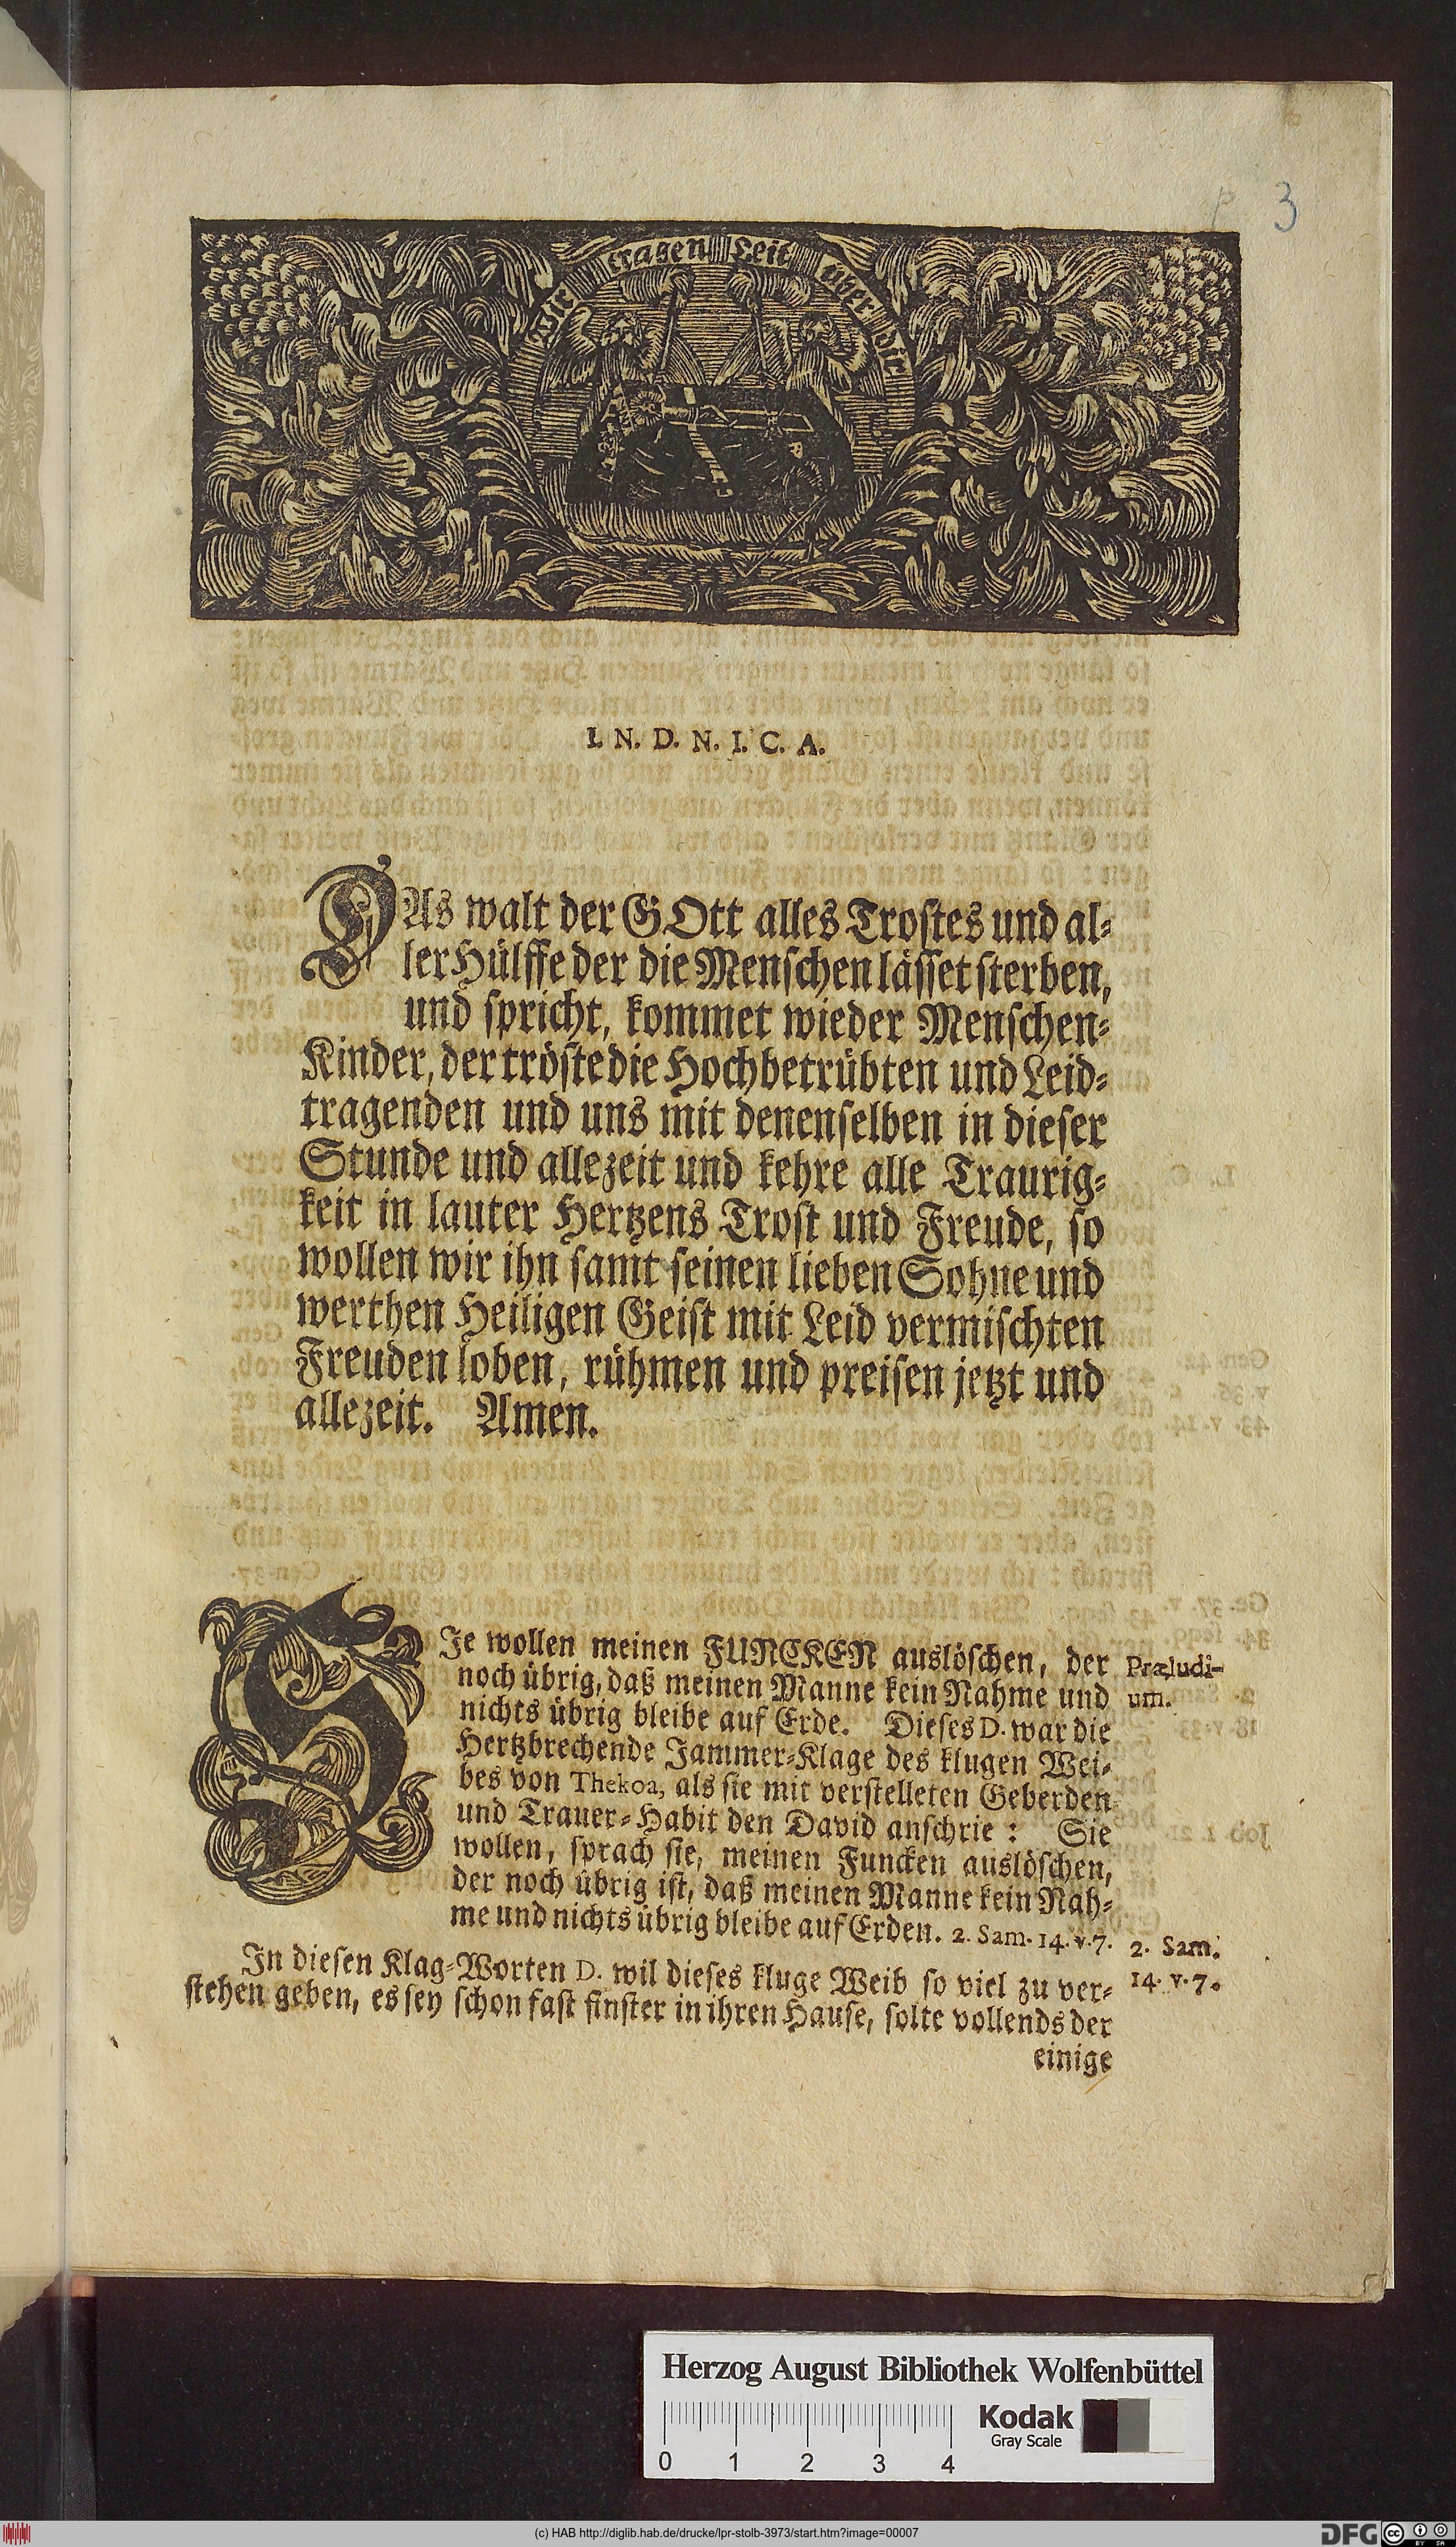 p 3
wir tragen Leit uber dir
I. N. D. N. I. C. A.
DAs walt der GOtt alles Trostes und al-
ler Hülffe der die Menschen lässet sterben,
und spricht, kommet wieder Menschen-
Kinder, der tröste die Hochbetrübten und Leid-
tragenden und uns mit denenselben in dieser
Stunde und allezeit und kehre alle Traurig-
keit in lauter Hertzens Trost und Freude, so
wollen wir ihn samt seinen lieben Sohne und
werthen Heiligen Geist mit Leid vermischten
Freuden loben, rühmen und preisen jetzt und
allezeit. Amen.
SIe wollen meinen FUNCKEN auslöschen, der
noch übrig, daß meinen Manne kein Nahme und
nichts übrig bleibe auf Erde. Dieses D. war die
Hertzbrechende Jammer-Klage des klugen Wei-
bes von Thekoa, als sie mit verstelleten Geberden
und Trauer-Habit den David anschrie: Sie
wollen, sprach sie, meinen Funcken auslöschen,
der noch übrig ist, daß meinen Manne kein Nah-
me und nichts übrig bleibe auf Erden. 2. Sam. 14. v. 7.
In diesen Klag-Worten D. wil dieses kluge Weib so viel zu ver-
stehen geben, es sey schon fast finster in ihren Hause, solte vollends der
einige
Præludi-
um.
2. Sam.
14. v. 7.
Herzog August Bibliothek Wolfenbüttel
0 1 2 3 4
Kodak
Gray Scale
(c) HAB http://diglib.hab.de/drucke/lpr-stolb-3973/start.htm?image=00007
DFG
cc BY SA